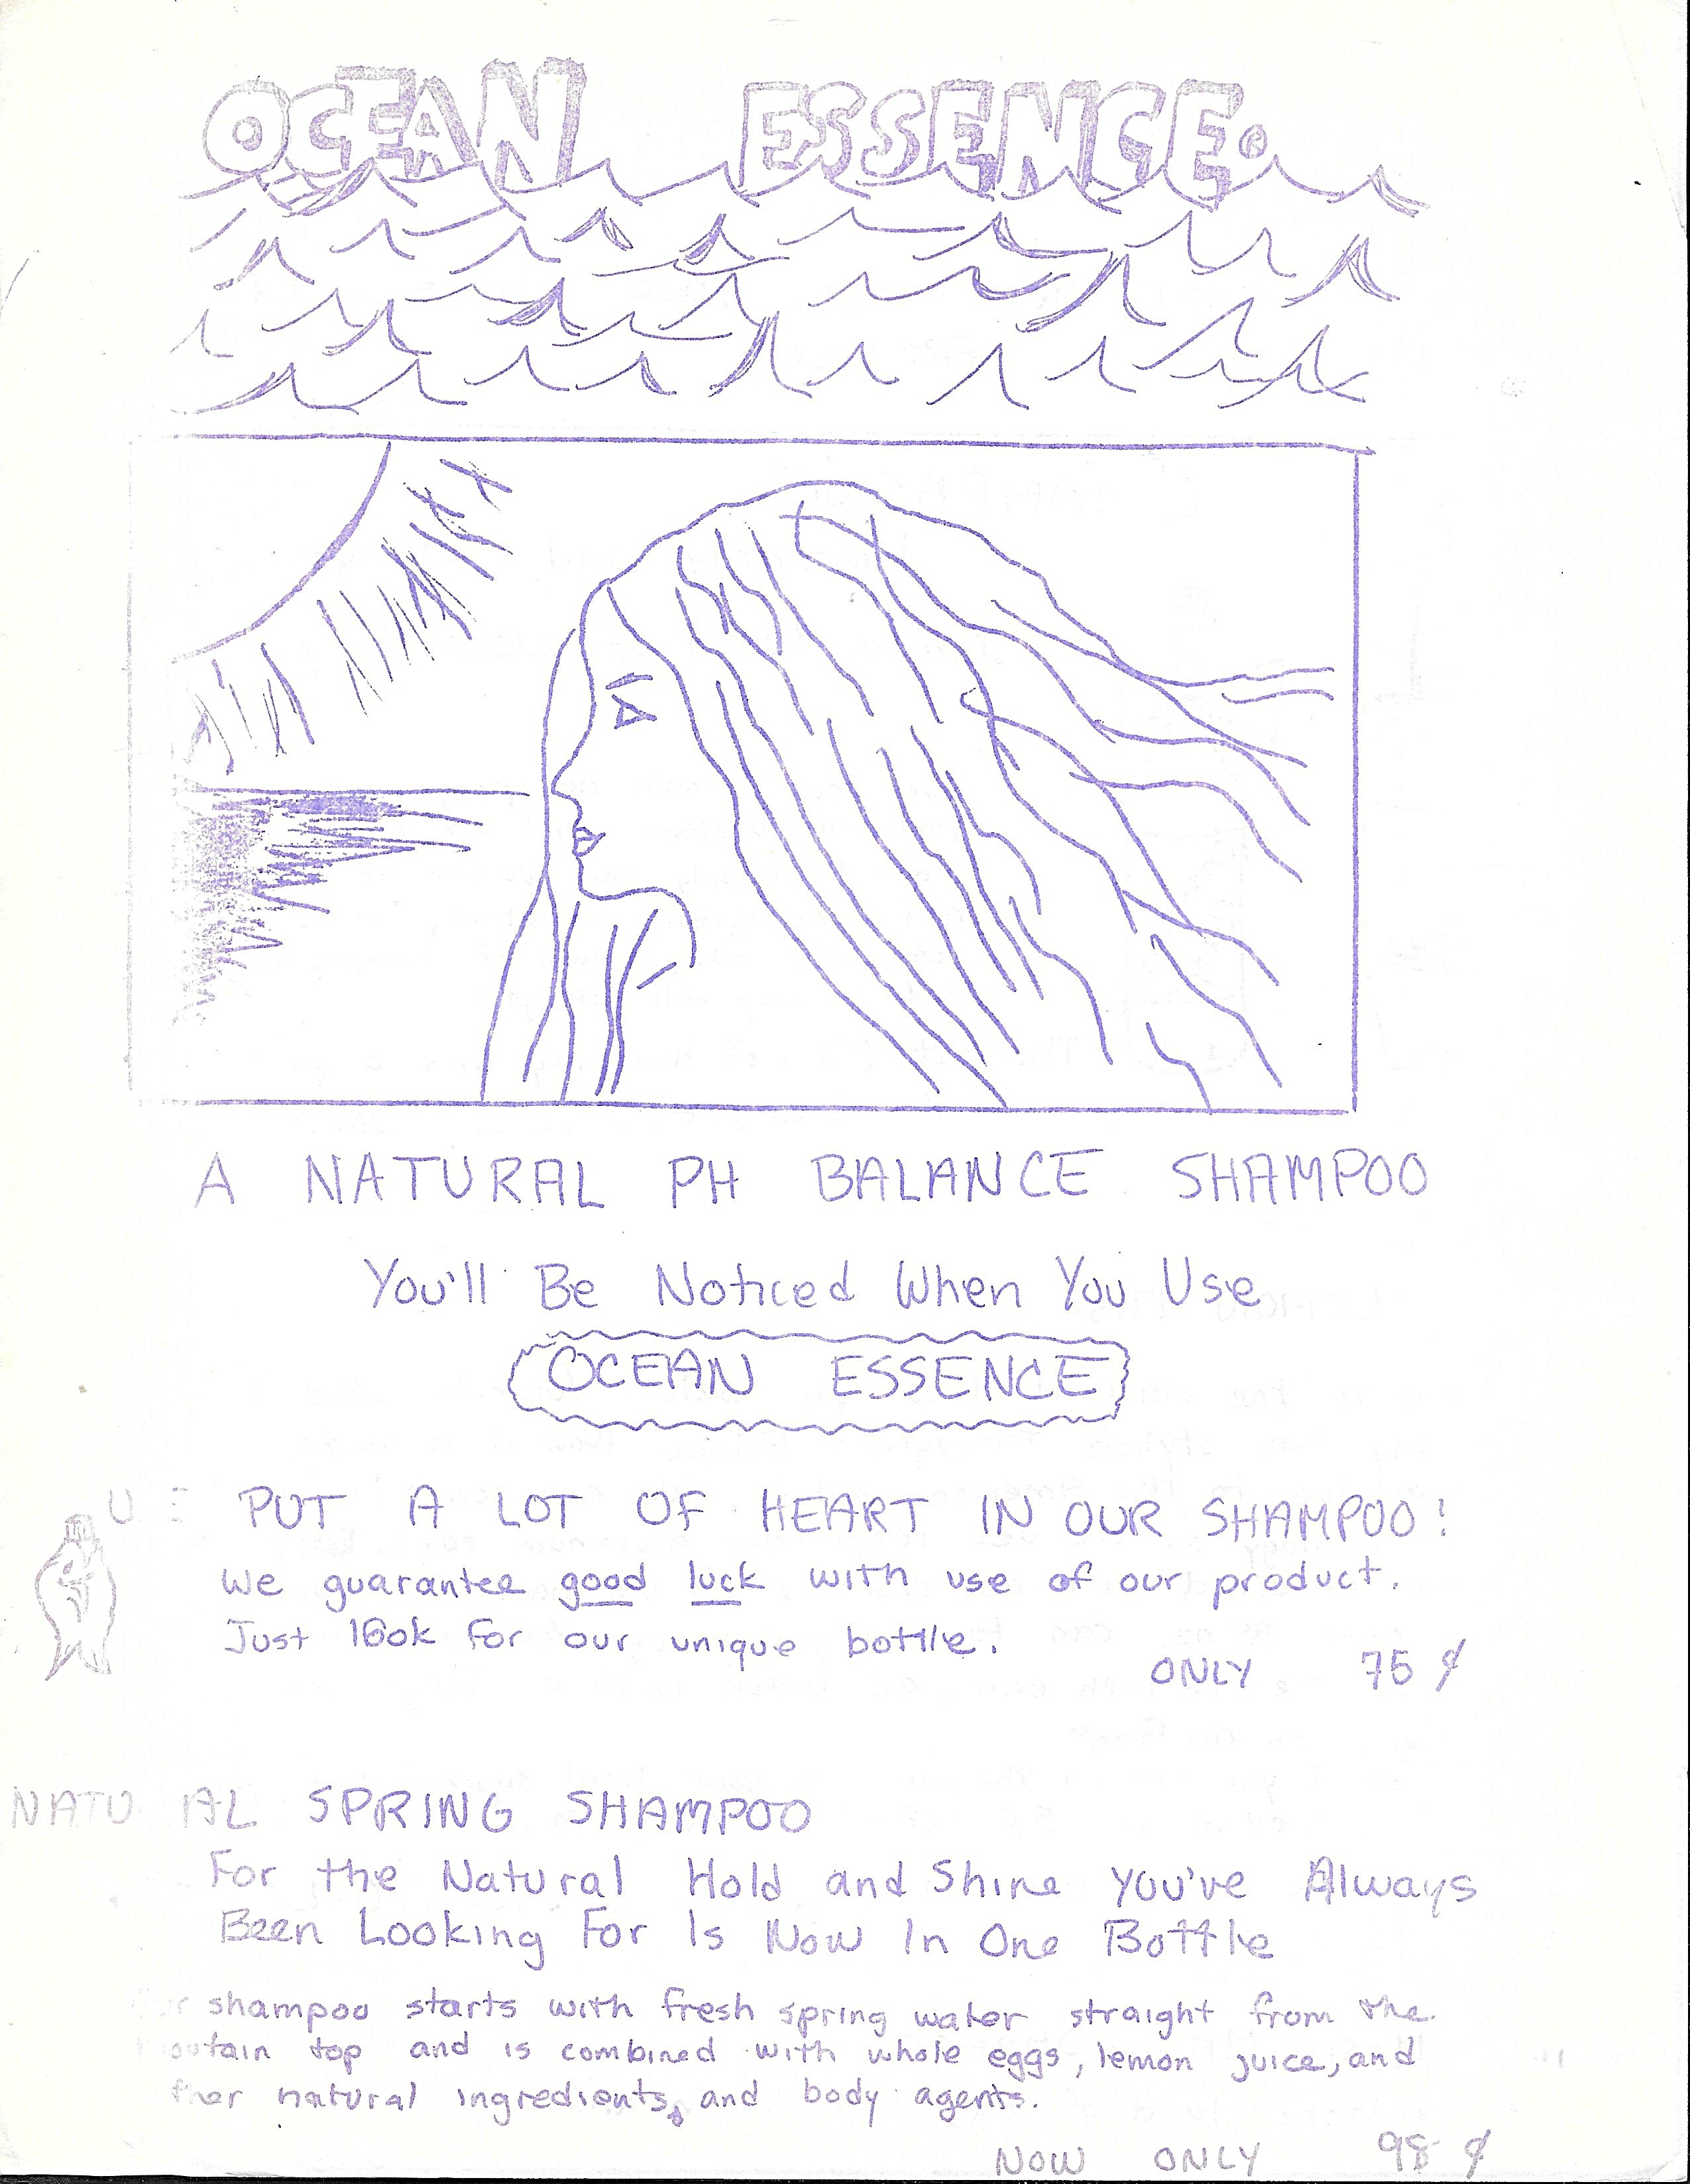 OCEAN ESSENCE
A NATURAL PH BALANCE SHAMPOO
You'll Be Noticed When You Use
OCEAN ESSENCE
PUT A LOT OF HEART IN OUR SHAMPOO!
We guarantee good luck with use of our product.
Just look for our unique bottle.
ONLY 75¢
NATU AL SPRING SHAMPOO
For the Natural Hold and Shine You've Always
Been Looking For Is Now In One Bottle
shampoo starts with fresh spring water straight from the
top and is combined with whole eggs, lemon juice, and
natural ingredients, and body agents.
NOW ONLY 98¢